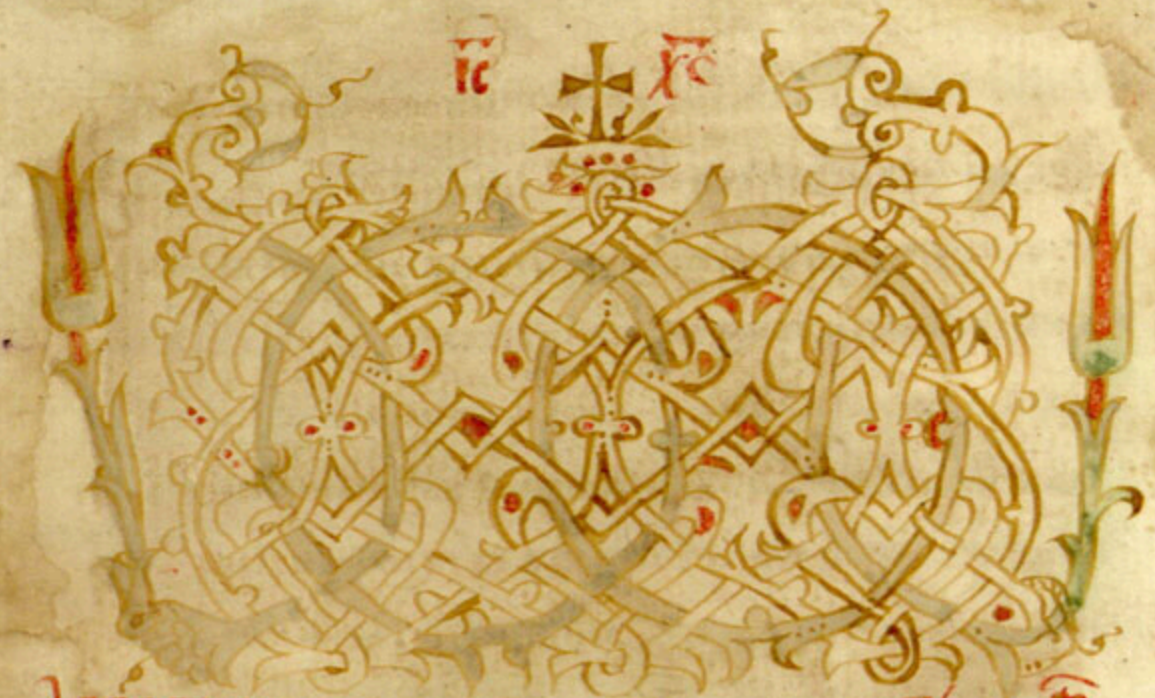 І҃С Х҃С